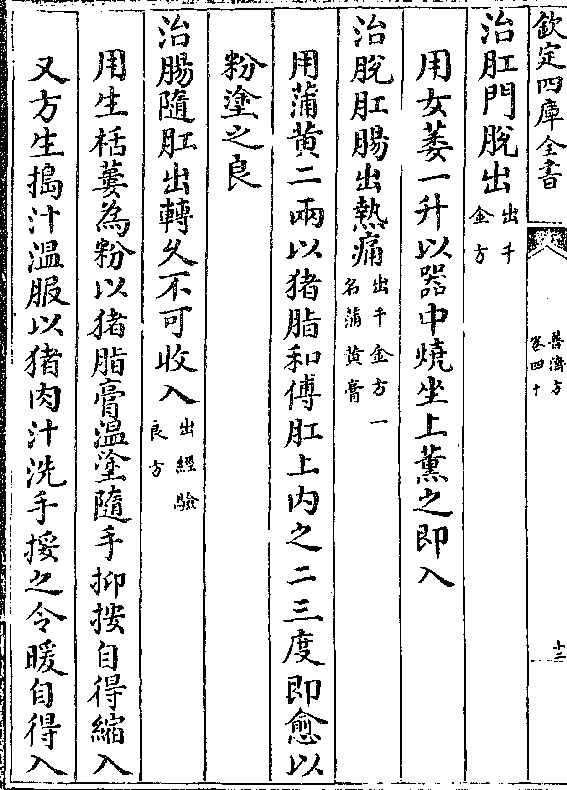 欽定四庫全書
普濟方
卷四十
十二
治肛門脫出出千金方
用女萎一升以器中燒坐上薰之即入
治脫肛腸出熱痛出千金方一名蒲黃膏
用蒲黃二兩以猪脂和傅肛上内之二三度即愈以
粉塗之良
治腸隨肛出轉久不可收入出經驗良方
用生栝蔞為粉以猪脂膏温塗隨手抑按自得縮入
又方生搗汁溫服以猪肉汁洗手挼之令暖自得入